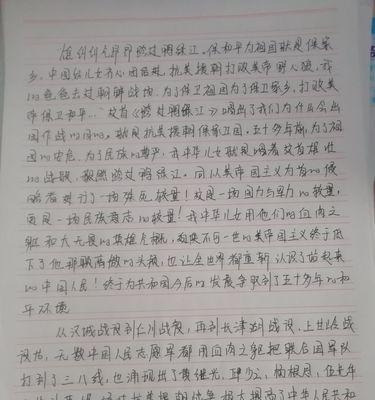 雄纠纠气昂昂跨过鸭绿江。保和平为祖国就是保家
乡。中国好儿女齐心团结紧,抗美援朝打败美帝野心狼,我
的爸爸去过朝鲜战场。为了保卫祖国为了保卫家乡,打败美
帝保卫和平... 这首《跨过鸭绿江》唱出了我们为什么会出
国作战的目的。就是抗美援朝保家卫国。五十多年前,为了祖
国的安危、为了民族的尊严,我中华儿女就是唱着这首雄壮
的战歌,毅然跨过鸭绿江。同以美帝国主义为首的侵
略者进行了一场殊死较量!这是一场国力与军力的较量,
更是一场民族意志的较量!我中华儿女用他们的血肉之
躯和大无畏的英雄气概,迫使不可一世的美帝国主义终于低
下了他那骄傲的头颅,也让全世界都重新认识了站起来
的中国人民!终于为共和国今后的发展争取到了五十多年的和
平环境
从汉城战役到仁川战役,再到长津湖战役、上甘岭战
役,无数中国人民志愿军都用血肉之躯把联合国军队
打到了三八线,也涌现出了黄继光、邱少云、杨根思、伍先华